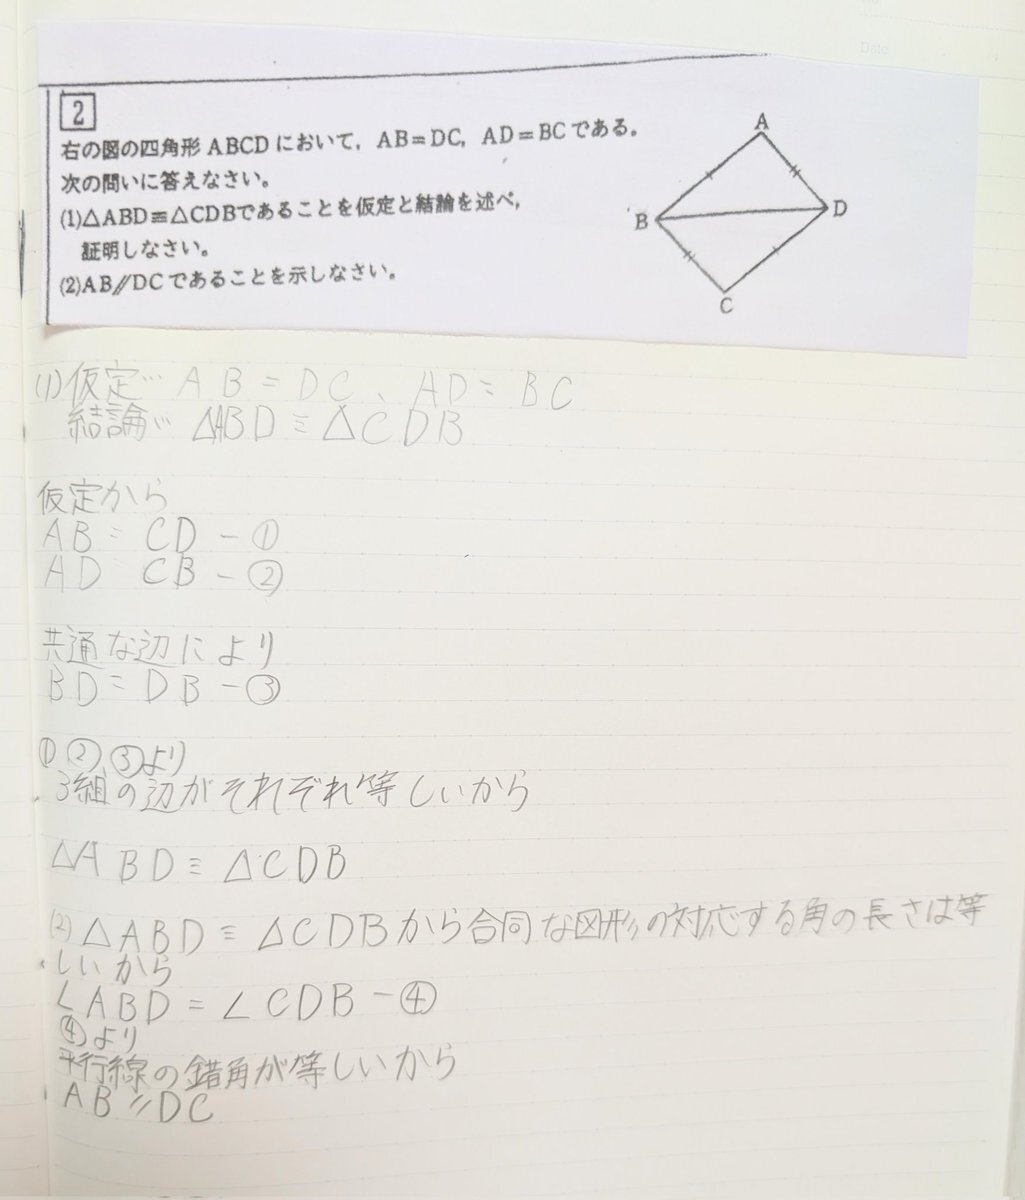 Date
2
右の図の四角形 ABCD において，AB＝DC，AD＝BC である。
次の問いに答えなさい。
(1)△ABD≡△CDBであることを仮定と結論を述べ，
証明しなさい。
(2)AB∥DC であることを示しなさい。
A
B
D
C
(1)仮定… AB = DC、AD = BC
結論… △ABD ≡ △CDB
仮定から
AB = CD - ①
AD CB - ②
共通な辺により
BD = DB - ③
① ② ③より
3組の辺がそれぞれ等しいから
△ABD ≡ △CDB
(2) △ABD ≡ △CDBから合同な図形の対応する角の長さは等
しいから
∠ABD = ∠CDB - ④
④より
平行線の錯角が等しいから
AB∥DC